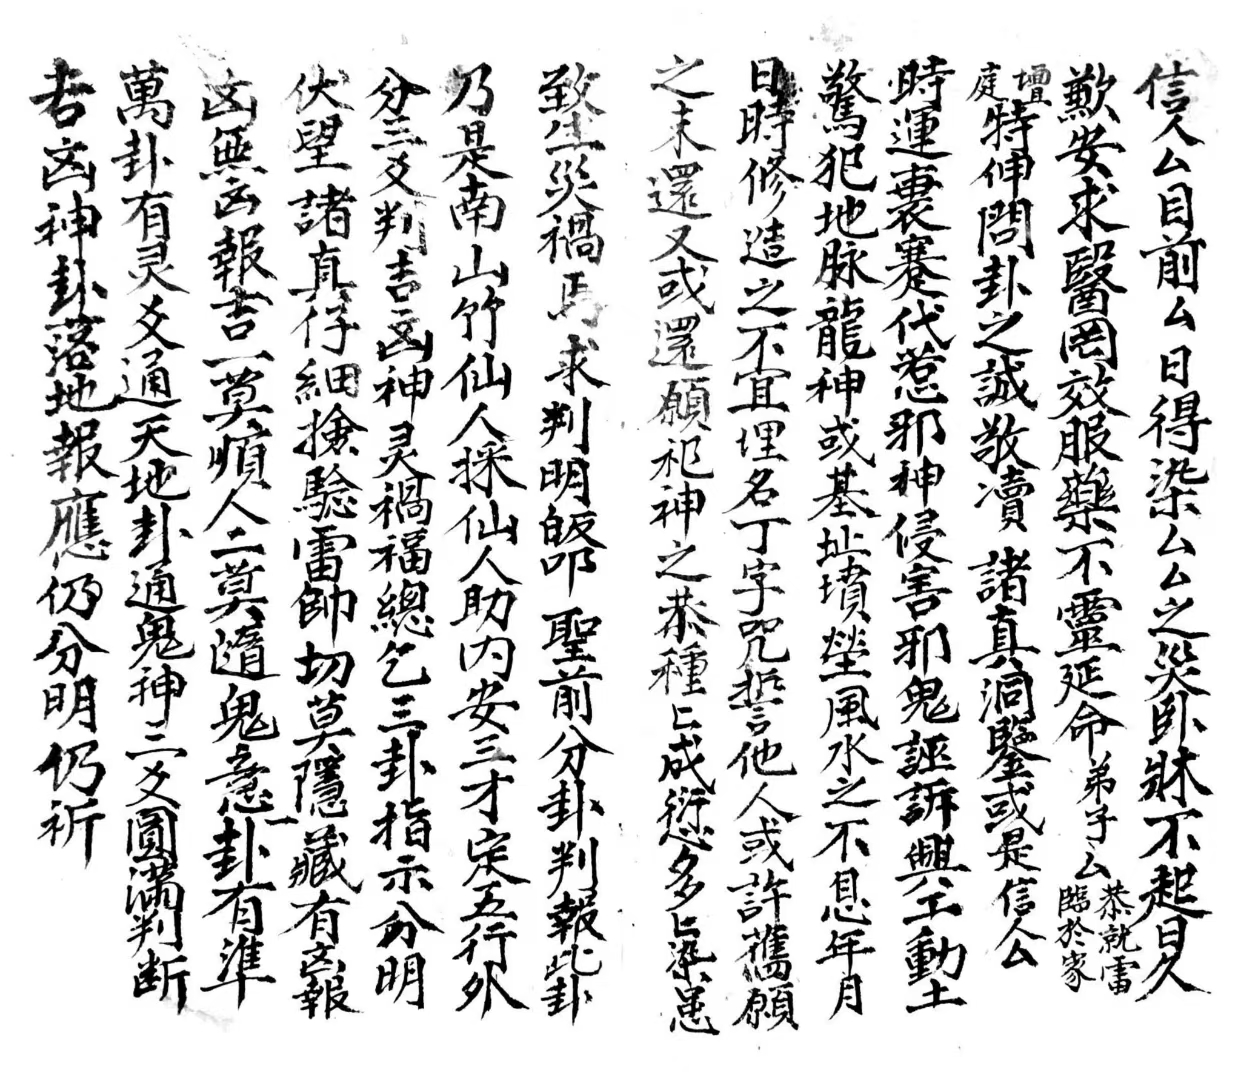 信人厶目前厶日得染厶厶之災卧牀不起日久
歎安求醫罔效服藥不靈延命弟子厶恭就雷臨於家
壇庭特伸問卦之誠敬瀆諸真洞鑒或是信人厶
時運衰蹇代惹邪神侵害邪鬼誣訴興工動土
驚犯地脉龍神或基址墳塋風水之不息年月
日時修造之不宜埋名丁字咒誓他人或許舊願
之未還又或還願祀神之恭種〻成愆多〻染患
致生災禍焉求判明皈叩聖前分卦判報此卦
乃是南山竹仙人採仙人助内安三才定五行外
分三爻判吉凶神灵禍福總乞三卦指示分明
伏望諸真仔細撿驗雷帥切莫隱藏有凶報
凶無凶報吉一莫順人二莫隨鬼意一卦有準
萬卦有灵爻通天地卦通鬼神三爻圓滿判断
吉凶神卦落地報應仍分明仍祈